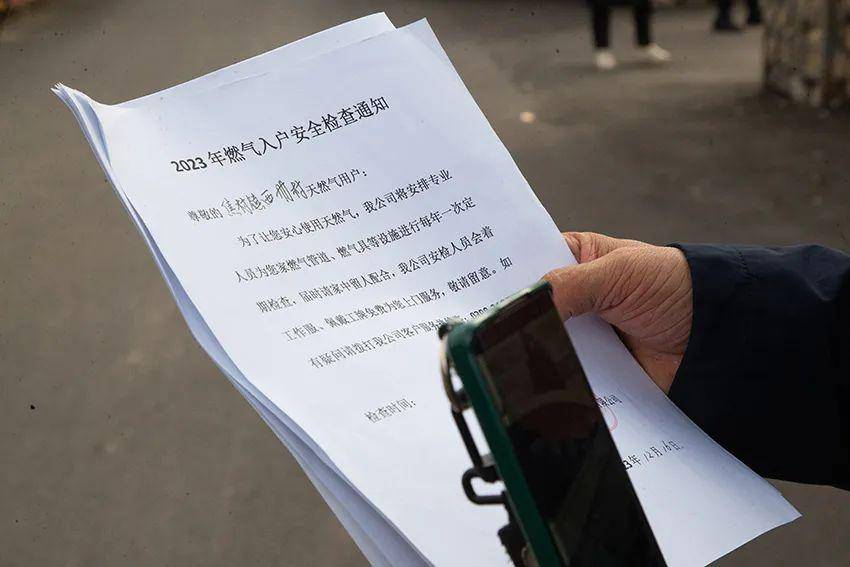 2023年燃气入户安全检查通知
尊敬的焦村镇西常村天然气用户：
为了让您安心使用天然气，我公司将安排专业
人员为您家燃气管道、燃气具等设施进行每年一次定
期检查，届时请家中留人配合，我公司安检人员会着
工作服、佩戴工牌免费为您上门服务，敬请留意。如
有疑问请拨打我公司客户服务
检查时间：
公司
3年12月16日